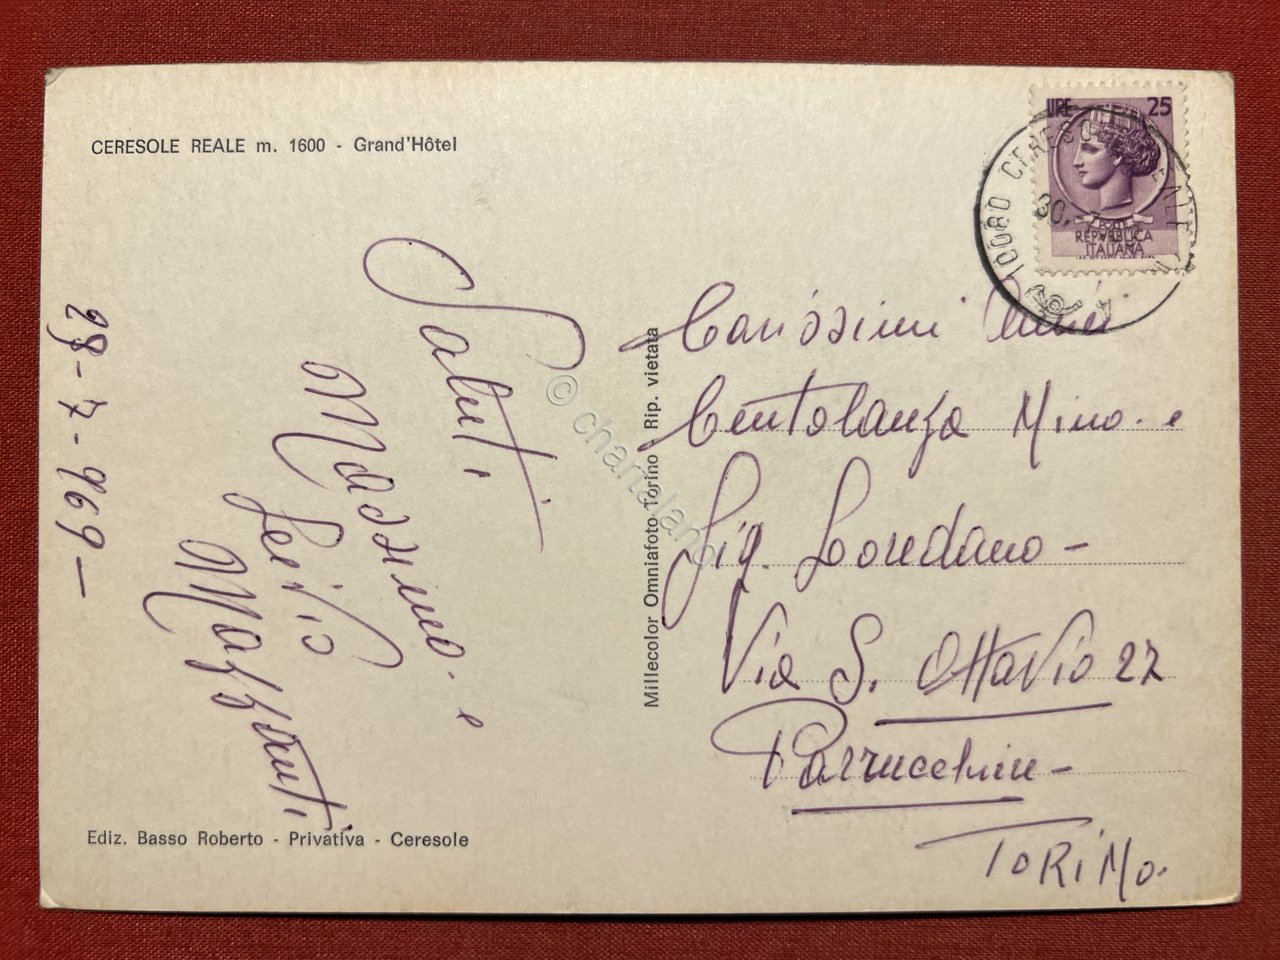 CERESOLE REALE m. 1600 - Grand'Hôtel
LIRE 25
POSTE
REPVBBLICA
ITALIANA
10080 CERESOLE REALE
30.-7
29-7-969-
Saluti
Massimo e
Mazzonti
Carissimi Amici
Centolanza Mino e
Sig. Loredano-
Via S. Ottavio 27
Parrucchiere-
TORINO.
Millecolor Omniafoto Torino Rip. vietata
Ediz. Basso Roberto - Privativa - Ceresole
© chartaland